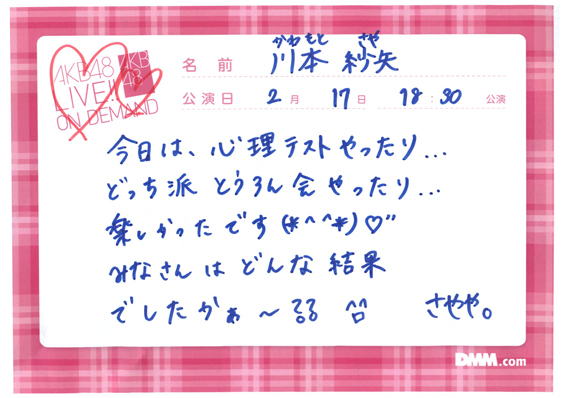 AKB48
LIVE!!
ON DEMAND
AKB
48
かわもと さや
名前 川本 紗矢
公演日 2月 17日 18:30 公演
今日は、心理テストやったり...
どっち派とうろん会やったり...
楽しかったです(*^^*)♡"
みなさんはどんな結果
でしたかぁ〜 さやや。
DMM.com